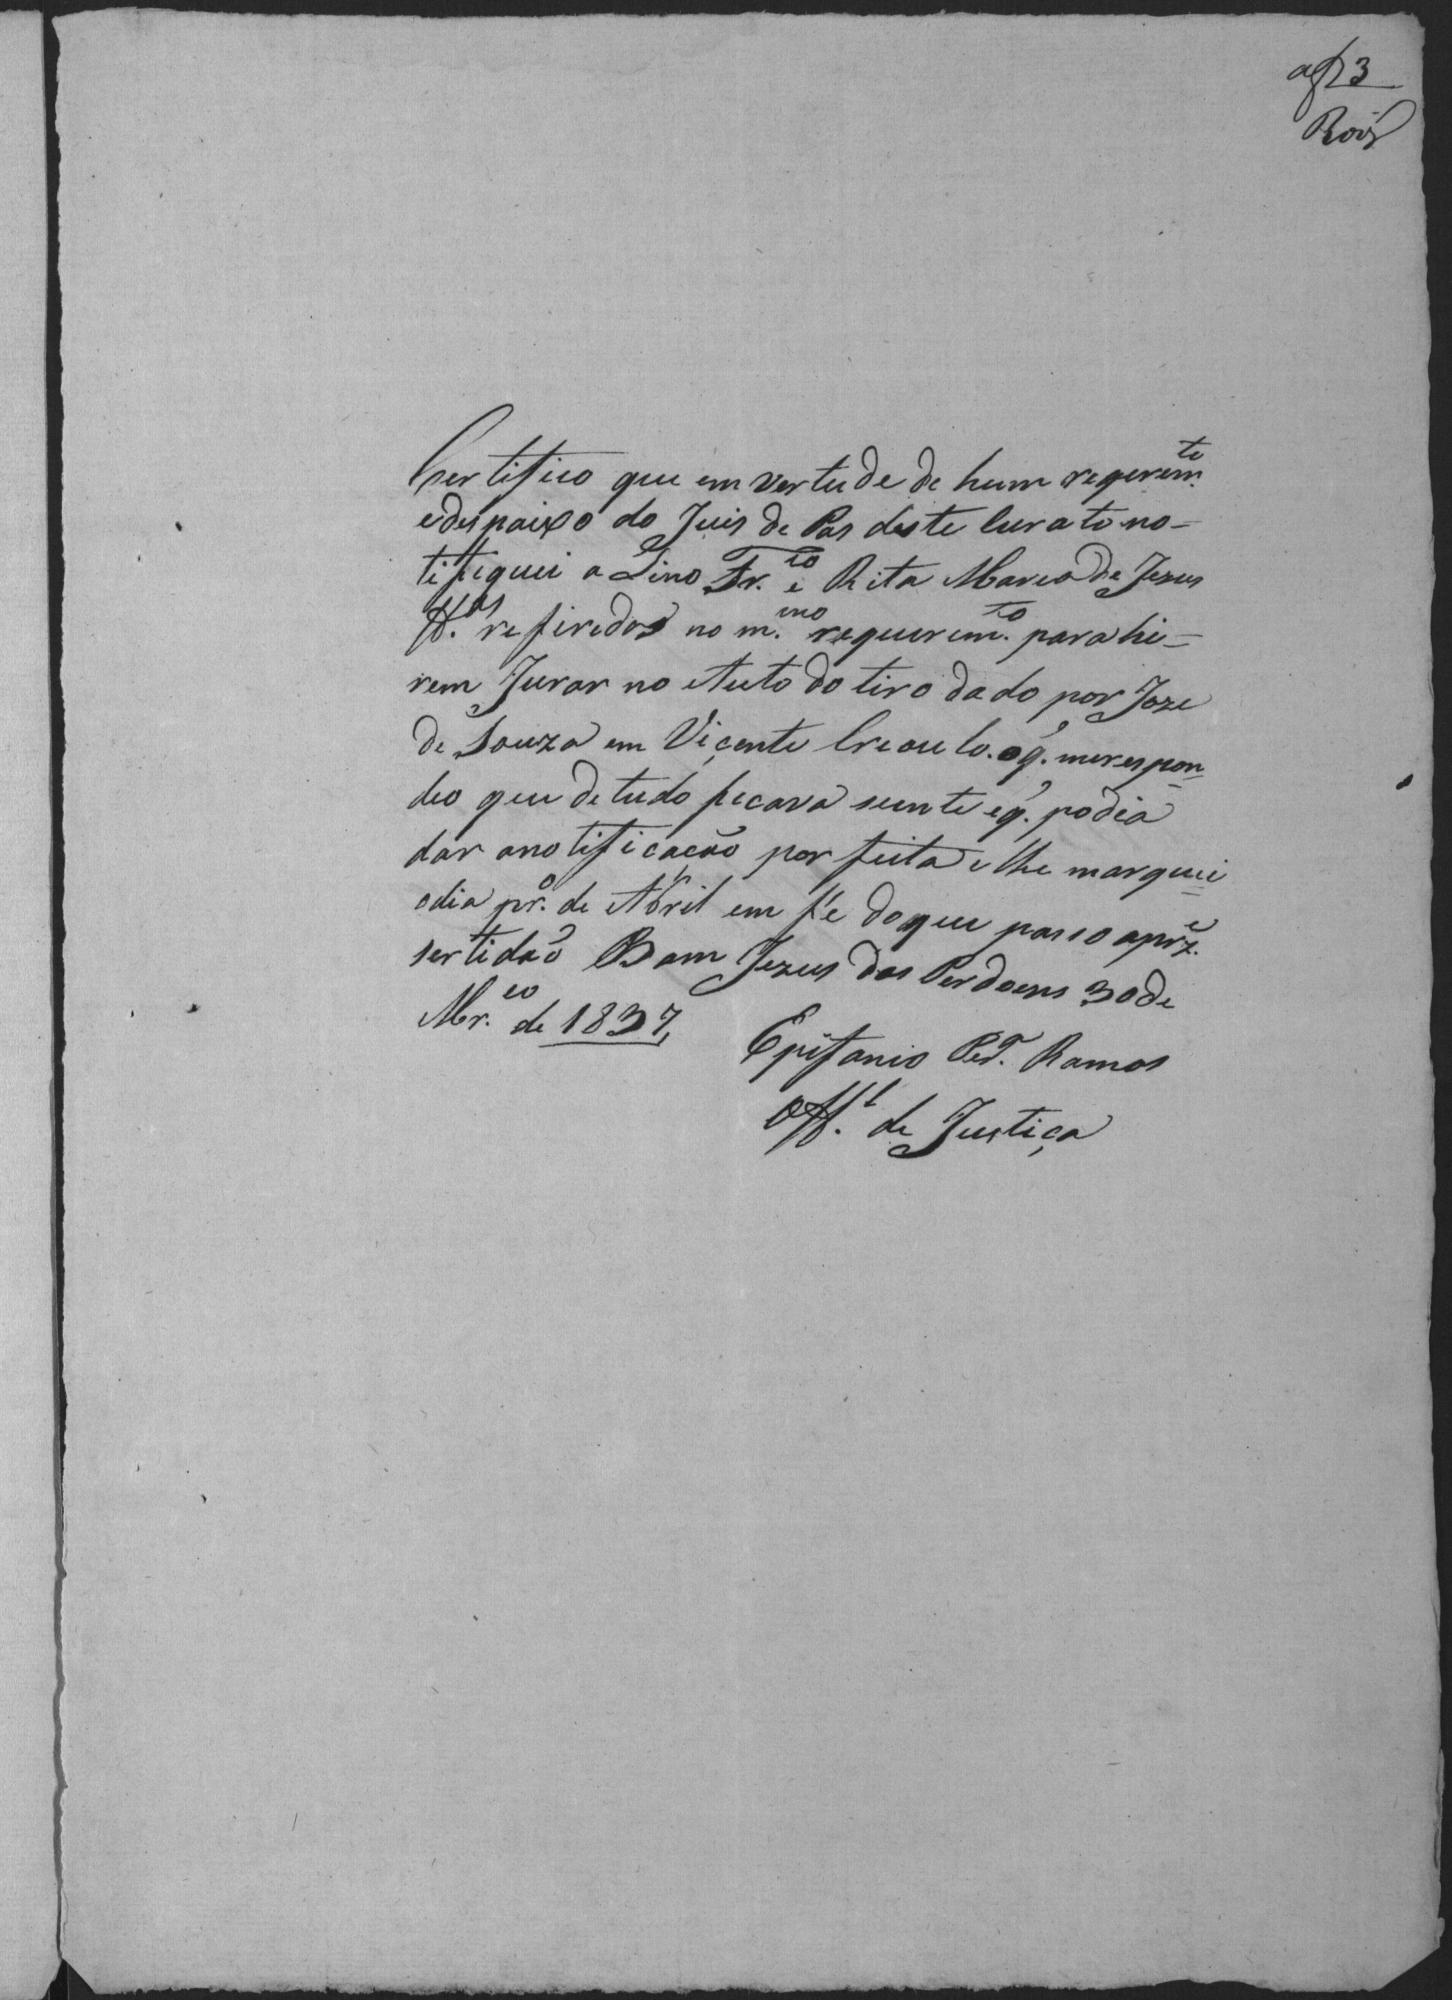 af 3
Roiz
Certifico que em vertude de hum reqerem.te
e despaixo do Juis de Pas deste Curato no-
tifiquei a Lino Fr.co e Rita Maria de Jezus
tt.as refiredos no m.mo requerem.to para hi-
rem Jurar no Auto do tiro dado por Joze
de Souza em Viçente Creoulo. o q. me respon-
deo que de tudo ficava sciente e q. podia
dar a notificação por feita e lhe marquei
o dia pr.o de Abril em fé do que passo a prz.e
sertidaõ Bom Jezus dos Perdoens 30 de
Mr.co de 1837,
Epifanio Ped. Ramos
Off.l de Justiça